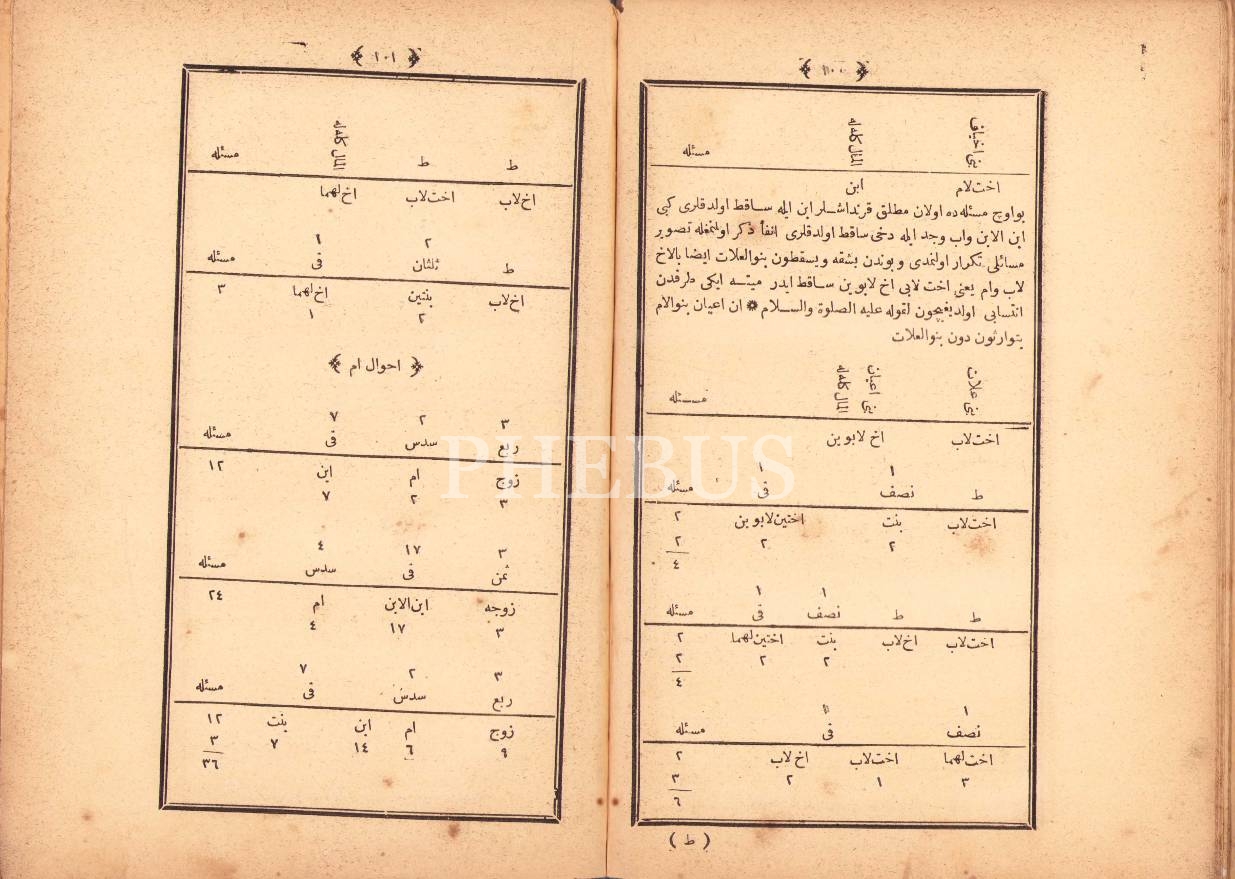 ﴿ ١٠٠ ﴾
بنى اخياف المال كله له مسئله
اخت لام ابن
بواوچ مسئله ده اولان مطلق قرنداشلر ابن ايله ساقط اولدقلرى كبى
ابن الابن واب وجد ايله دخى ساقط اولدقلرى انفاً ذكر اولنمغله تصوير
مسائلى تكرار اولنمدى وبوندن بشقه ويسقطون بنوالعلات ايضا بالاخ
لاب وام يعنى اخت لابى اخ لابوين ساقط ايدر ميته ايكى طرفدن
انتسابى اولديغيچون لقوله عليه الصلوة والسلام ❁ ان اعيان بنوالام
يتوارثون دون بنوالعلات
بنى علات بنى اعيان المال كله له مسئله
اخت لاب اخ لابوين
١ ١
ط نصف قى مسئله
اخت لاب بنت اختين لابوين ٢
٢ ٢ ٢
٤
١ ١
ط ط نصف قى مسئله
اخت لاب اخ لاب بنت اختين لهما ٢
٢ ٢ ٢
٤
١
نصف قى مسئله
اخت لهما اخت لاب اخ لاب ٢
٣ ١ ٢ ٣
٦
( ط )
﴿ ١٠١ ﴾
ط ط المال كله له مسئله
اخ لاب اخت لاب اخ لهما
٢ ١
ط ثلثان قى مسئله
اخ لاب بنتين اخ لهما ٣
٢ ١
﴿ احوال ام ﴾
٣ ٢ ٧
ربع سدس قى مسئله
زوج ام ابن ١٢
٣ ٢ ٧
٣ ١٧ ٤
ثمن قى سدس مسئله
زوجه ابن الابن ام ٢٤
٣ ١٧ ٤
٣ ٢ ٧
ربع سدس قى مسئله
زوج ام ابن بنت ١٢
٩ ٦ ١٤ ٧ ٣
٣٦
PHEBUS